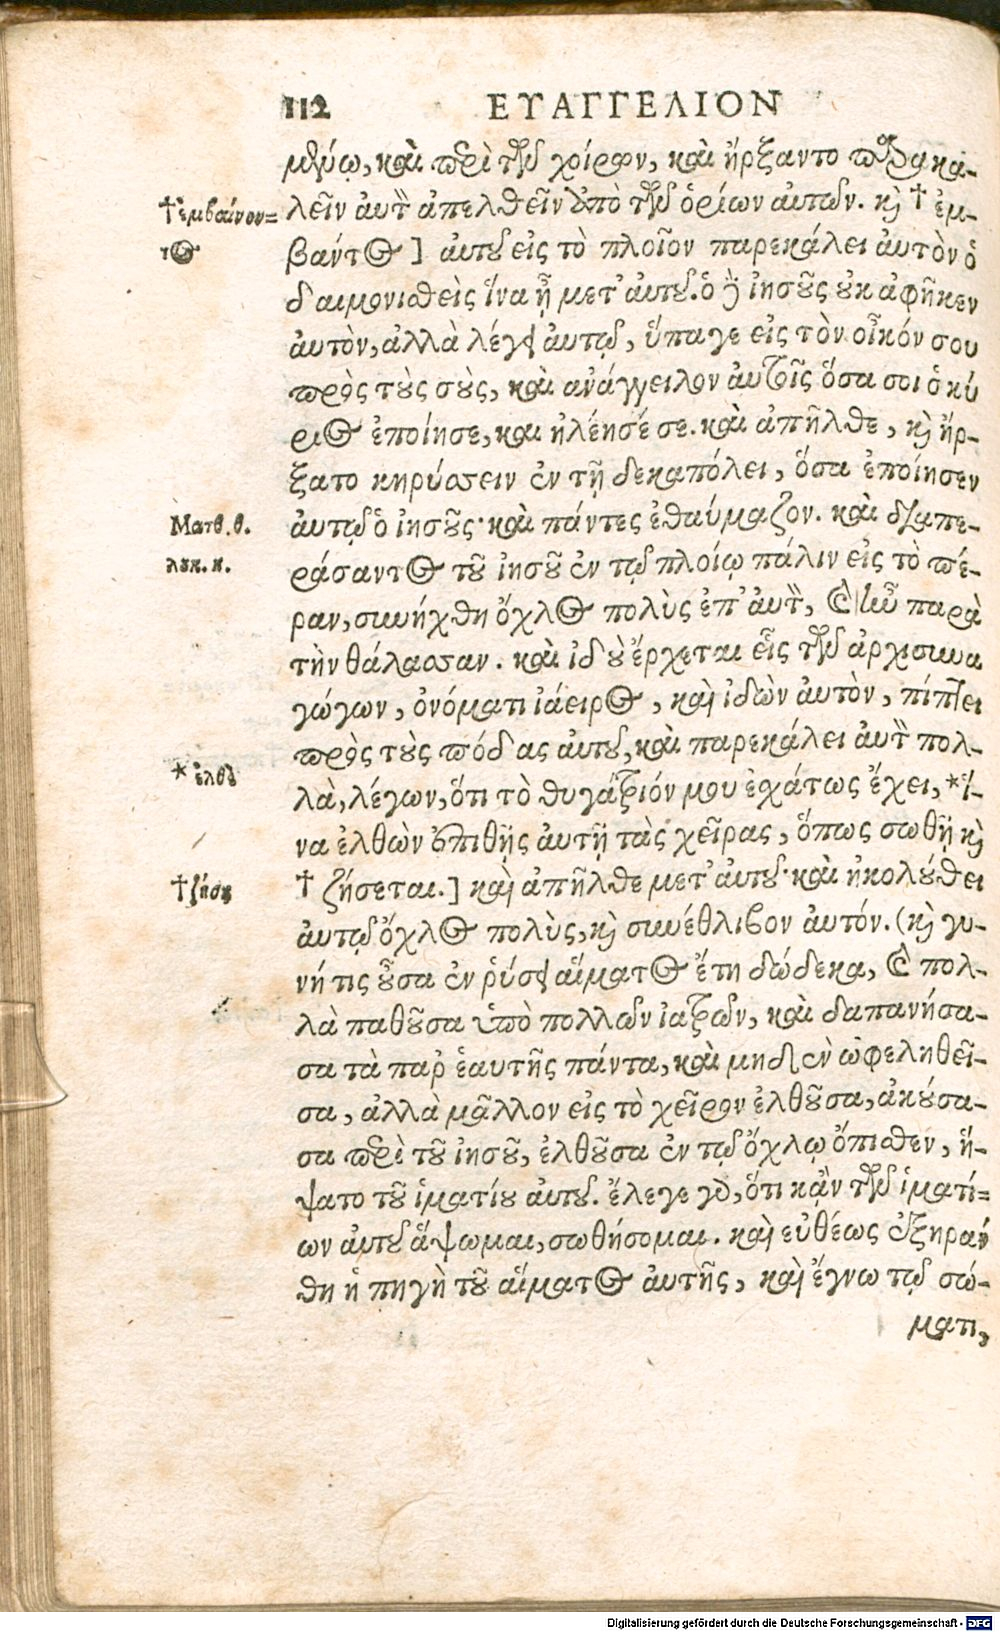 112 ΕΥΑΓΓΕΛΙΟΝ
μένῳ, καὶ περὶ τῶν χοίρων, καὶ ἤρξαντο παρακα-
λεῖν αὐτὸν ἀπελθεῖν ἀπὸ τῶν ὁρίων αὐτῶν. καὶ † ἐμ-
†ἐμβαίνον=
τος
βάντος] αὐτοῦ εἰς τὸ πλοῖον παρεκάλει αὐτὸν ὁ
δαιμονισθεὶς ἵνα ᾖ μετ' αὐτοῦ. ὁ δὲ ἰησοῦς οὐκ ἀφῆκεν
αὐτὸν, ἀλλὰ λέγει αὐτῷ, ὕπαγε εἰς τὸν οἶκόν σου
πρὸς τοὺς σοὺς, καὶ ἀνάγγειλον αὐτοῖς ὅσα σοι ὁ κύ
ριος ἐποίησε, και ἠλέησέ σε. καὶ ἀπῆλθε, καὶ ἤρ-
ξατο κηρύσσειν ἐν τῇ δεκαπόλει, ὅσα ἐποίησεν
Ματθ. θ.
αὐτῷ ὁ ἰησοῦς· καὶ πάντες ἐθαύμαζον. καὶ διαπε-
λουκ. η.
ράσαντος τοῦ ἰησοῦ ἐν τῷ πλοίῳ πάλιν εἰς τὸ πέ-
ραν, συνήχθη ὄχλος πολὺς ἐπ' αὐτὸν, καὶ ἦν παρὰ
τὴν θάλασσαν. καὶ ἰδοὺ ἔρχεται εἷς τῶν ἀρχισυνα
γώγων, ὀνόματι ἰάειρος, καὶ ἰδὼν αὐτὸν, πίπτει
πρὸς τοὺς πόδας αὐτοῦ, καὶ παρεκάλει αὐτὸν πολ-
* ἐλθὲ
λὰ, λέγων, ὅτι τὸ θυγάτριόν μου ἐσχάτως ἔχει, *ἵ-
να ἐλθὼν ἐπιθῇς αὐτῇ τὰς χεῖρας, ὅπως σωθῇ καὶ
†ζήσῃ
† ζήσεται.] καὶ ἀπῆλθε μετ' αὐτοῦ· καὶ ἠκολούθει
αὐτῷ ὄχλος πολὺς, καὶ συνέθλιβον αὐτόν. (καὶ γυ-
νή τις οὖσα ἐν ῥύσει αἵματος ἔτη δώδεκα, καὶ πολ-
λὰ παθοῦσα ὑπὸ πολλῶν ἰατρῶν, καὶ δαπανήσα-
σα τὰ παρ' ἑαυτῆς πάντα, καὶ μηδὲν ὠφεληθεῖ-
σα, ἀλλὰ μᾶλλον εἰς τὸ χεῖρον ἐλθοῦσα, ἀκούσα-
σα περὶ τοῦ ἰησοῦ, ἐλθοῦσα ἐν τῷ ὄχλῳ ὄπισθεν, ἥ-
ψατο τοῦ ἱματίου αὐτοῦ. ἔλεγε γὰρ, ὅτι κἂν τῶν ἱματί=
ων αὐτοῦ ἅψωμαι, σωθήσομαι. καὶ εὐθέως ἐξηράν
θη ἡ πηγὴ τοῦ αἵματος αὐτῆς, καὶ ἔγνω τῷ σώ-
ματι,
Digitalisierung gefördert durch die Deutsche Forschungsgemeinschaft - DFG